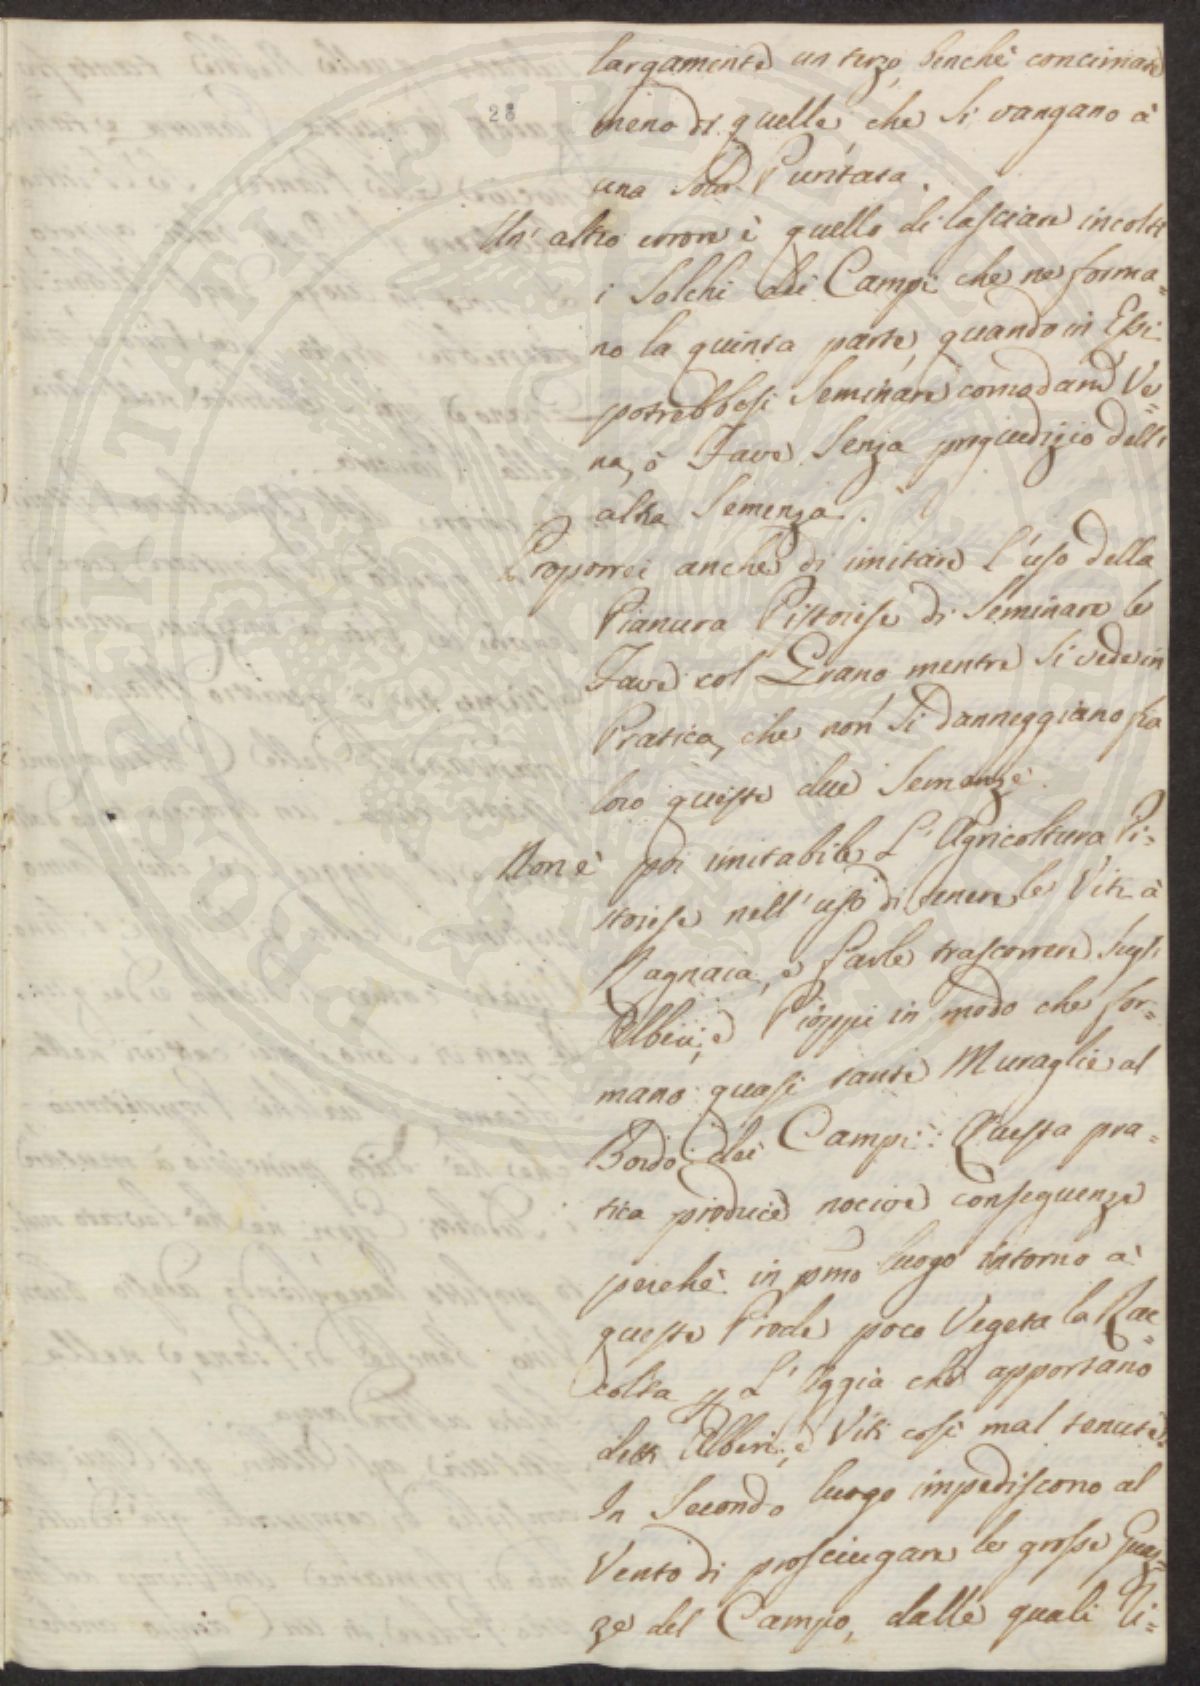 28
largamente un terzo, benchè concimate
meno di quelle che si vangano à
una sola Puntata.
Un' altro errore è quello di lasciare incolti
i Solchi dei Campi che ne forma=
no la quinta parte, quando in Essi
potrebbesi Seminare comodam.e Ve=
na, ò Fave Senza pregiudizio dell'
altra Semenza.
Proporrei anche di imitare l'uso della
Pianura Pistoiese di Seminare le
Fave col Grano, mentre Si vede in
Pratica, che non Si danneggiano fra
loro queste due Semenze.
Non è poi imitabile L'Agricoltura Pi=
stoiese nell'uso di tenere le Viti à
Ragnaia, e farle trascorrere Sugl'
Alberi, e Pioppi in modo che for=
mano quasi tante Muraglie al
Bordo dei Campi: Questa pra=
tica produce nocive conseguenze
perchè in pmo luogo intorno à
queste Prode poco Vegeta la Rac=
colta p L'Uggia che apportano
detti Alberi, e Viti così mal tenute.
In Secondo luogo impediscono al
Vento di prosciugare le grosse Guaz=
ze del Campo, dalle quali Vi=